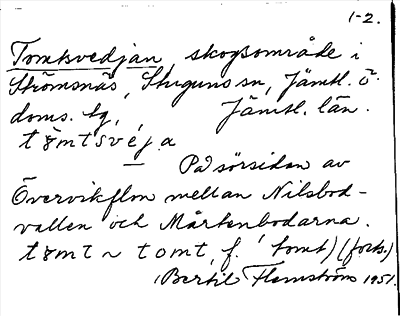 1-2.
Tomtsvedjan, skogsområde i
Strömsnäs, Stuguns sn, Jämtl. ö.
doms. tg, Jämtl. län.
tømtsveja
På sörsidan av
Övervikflon mellan Nilsbod-
vallen och Mårtenbodarna.
tømt ~ tomt, f. 'tomt) (forts.)
Bertil Flemström 1951.